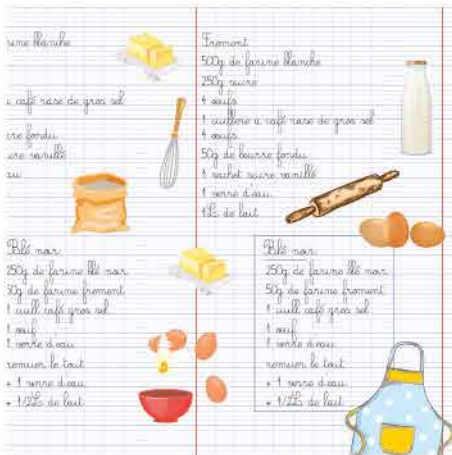 blanche
café rase de gros sel
fondu
vanillé
Blé noir
250g de farine blé noir
50g de farine froment
1 cuill café gros sel
1 œuf
1 verre d'eau
remuer le tout
+ 1 verre d'eau
+ 1/2L de lait
Froment
500g de farine blanche
250g sucre
4 œufs
1 cuillere a café rase de gros sel
4 œufs
50g de beurre fondu
1 sachet sucre vanillé
1 verre d'eau
1L de lait
Blé noir
250g de farine blé noir
50g de farine froment
1 cuill café gros sel
1 œuf
1 verre d'eau
remuer le tout
+ 1 verre d'eau
+ 1/2L de lait